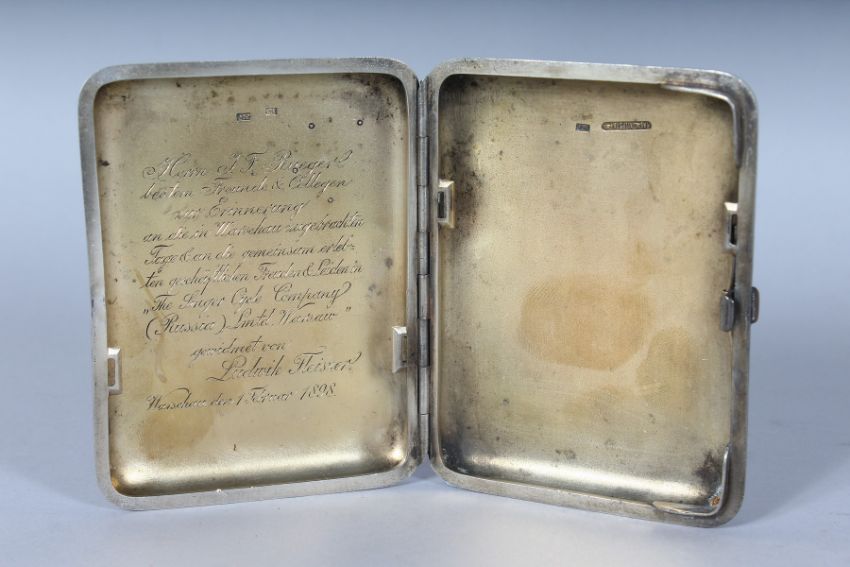 Herrn J. F. Rueger
bestem Freunde & Collegen
zur Erinnerung
an die in Warschau zugebrachten
Tage & an die gemeinsam erleb-
ten geschäftlichen Freuden & Leiden in
„The Singer Cycle Company
(Russia) Lmtd. Warsaw"
gewidmet von
Ludwik Fleiszer
Warschau den 1 Februar 1898.